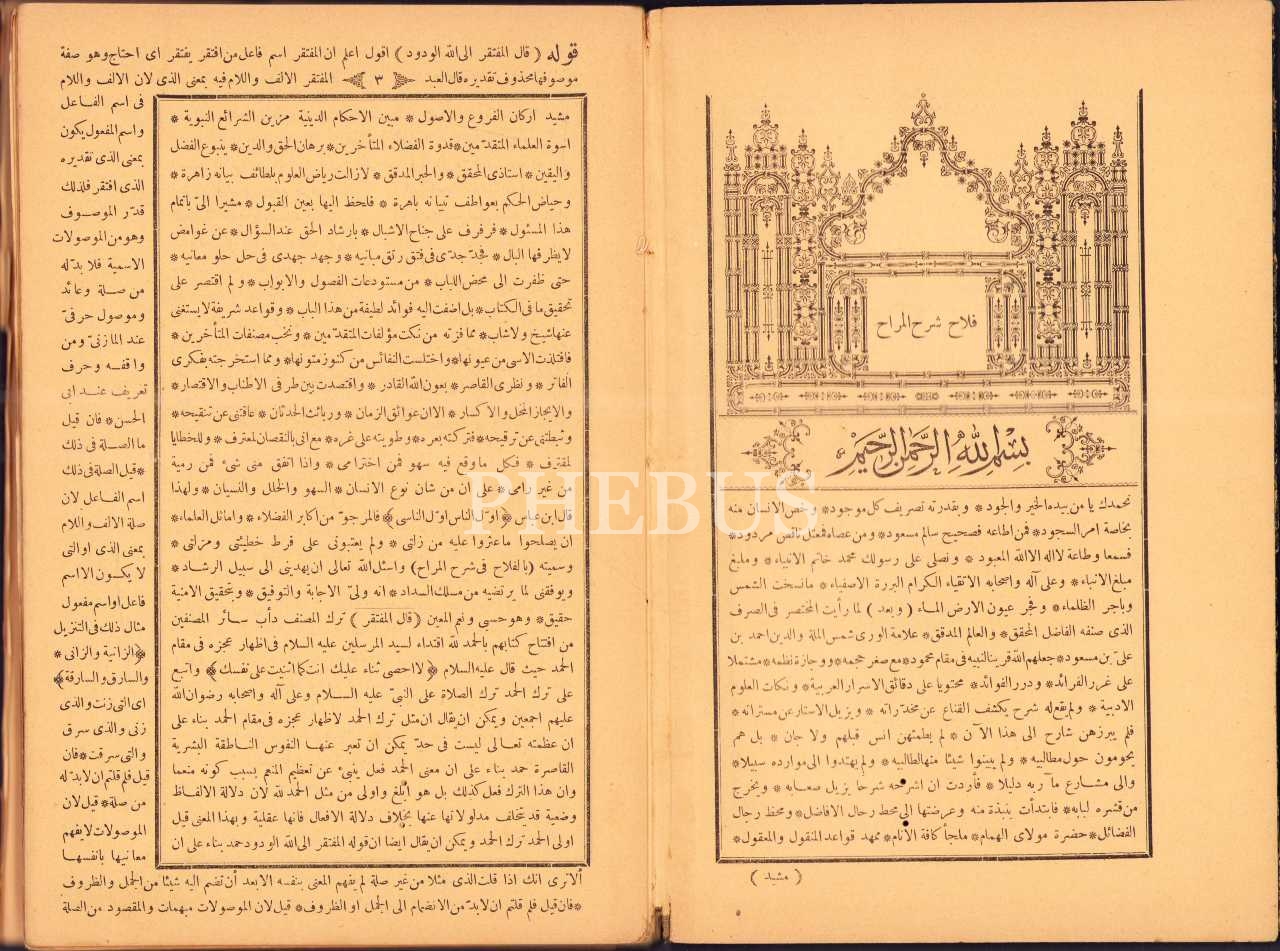 فلاح شرح المراح
بسم الله الرحمن الرحيم
نحمدك يا من بيده الخير والجود * وبقدرته تصريف كل موجود * وخص الانسان منه
بخاصة امر السجود * فمن اطاعه فصحيح سالم مسعود * ومن عصاه فمعتل ناقص مردود *
فسمعا وطاعة لا اله الا الله المعبود * ونصلى على رسولك محمد خاتم الانبياء * ومبلغ
مبلغ الانباء * وعلى آله واصحابه الاتقياء الكرام البررة الاصفياء * ما نسخت الشمس
وباجر الظلماء * وفجر عيون الارض الماء ( وبعد ) لما رأيت المختصر فى الصرف
الذى صنفه الفاضل المحقق * والعالم المدقق * علامة الورى شمس الملة والدين احمد بن
على بن مسعود * جعلهم الله قرينا لنبيه فى مقام محمود * مع صغر حجمه * ووجازة نظمه * مشتملا
على غرر الفرائد * ودرر الفوائد * محتويا على دقائق الاسرار العربية * ونكات العلوم
الادبية * ولم يقع له شرح يكشف القناع عن مخدراته * ويزيل الاستار عن مستراته *
فلم يبرزهن شارح الى هذا الآن * لم يطمثهن انس قبلهم ولا جان * بل هم
يحومون حول مطالبه * ولم يبينوا شيئا منها لطالبيه * ولم يهتدوا الى موارده سبيلا *
والى مشارع مآربه دليلا * فأردت ان اشرحه شرحا يزيل صعابه * ويخرج
من قشره لبابه * فابتدأت بنبذة منه وعرضتها الى محط رحال الافاضل * ومحط رجال
الفضائل * حضرة مولاى الهمام * ملجأ كافة الانام * ممهد قواعد المنقول والمعقول *
( مشيد )
قوله ( قال المفتقر الى الله الودود ) اقول اعلم ان المفتقر اسم فاعل من افتقر يفتقر اى احتاج وهو صفة
موصوفها محذوف تقديره قال العبد ٣ المفتقر الالف واللام فيه بمعنى الذى لان الالف واللام
مشيد اركان الفروع والاصول * مبين الاحكام الدينية مزين الشرائع النبوية *
اسوة العلماء المتقدمين * قدوة الفضلاء المتأخرين * برهان الحق والدين * ينبوع الفضل
واليقين * استاذى المحقق * والحبر المدقق * لازالت رياض العلوم بلطائف بيانه زاهرة *
وحياض الحكم بعواطف تبيانه باهرة * فلحظ اليها بعين القبول * مشيرا الى باتمام
هذا المسئول * فرفرف على جناح الاشبال * بارشاد الحق عند السؤال * عن غوامض
لا يطرقها البال * فجد جدى فى فتق رتق مبانيه * وجهد جهدى فى حل حلو معانيه *
حتى ظفرت الى محض اللباب * من مستودعات الفصول والابواب * ولم اقتصر على
تحقيق ما فى الكتاب * بل اضفت اليه فوائد لطيفة من هذا الباب * وقواعد شريفة لا يستغنى
عنها شيخ ولا شاب * مما فزته من نكت مؤلفات المتقدمين * ونخب مصنفات المتأخرين *
فاقتلذت الاسى من عيونها * واختلست النفائس من كنوز متونها * ومما استخرجته بفكرى
الفاتر * ونظرى القاصر * بعون الله القادر * واقتصدت بين طرفى الاطناب والاقتصار *
والايجاز المخل والاكسار * الا ان عوائق الزمان * وربائث الحدثان * عاقتنى عن تنقيحه *
وثبطتنى عن ترقيحه * فتركته بعره * وطويته على غره * مع انى بالنقصان لمعترف * وللخطايا
لمقترف * فكل ما وقع فيه سهو فمن اخترامى * واذا اتفق منى شئ فمن رمية
من غير رامى * على ان من شان نوع الانسان * السهو والخلل والنسيان * ولهذا
قال ابن عباس ﴿ اول الناس اول الناسى ﴾ فالمرجو من اكابر الفضلاء * واماثل العلماء *
ان يصلحوا ما عثروا عليه من زلتى * ولم يعتبونى على فرط خطيئتى ومزلتى *
وسميته ( بالفلاح فى شرح المراح ) واسئل الله تعالى ان يهدينى الى سبيل الرشاد *
ويوفقنى لما يرتضيه من مسلك السداد * انه ولى الاجابة والتوفيق * وبتحقيق الامنية
حقيق * وهو حسبى ونعم المعين ( قال المفتقر ) ترك المصنف دأب سائر المصنفين
من افتتاح كتابهم بالحمد لله اقتداء لسيد المرسلين عليه السلام فى اظهار عجزه فى مقام
الحمد حيث قال عليه السلام ﴿ لا احصى ثناء عليك انت كما اثنيت على نفسك ﴾ واتبع
على ترك الحمد ترك الصلاة على النبى عليه السلام وعلى آله واصحابه رضوان الله
عليهم اجمعين ويمكن ان يقال ان مثل ترك الحمد لاظهار عجزه فى مقام الحمد بناء على
ان عظمته تعالى ليست فى حد يمكن ان تعبر عنها النفوس الناطقة البشرية
القاصرة حمد بناء على ان معنى الحمد فعل ينبئ عن تعظيم المنعم بسبب كونه منعما
وان هذا الترك فعل كذلك بل هو ابلغ واولى من مثل الحمد لله لان دلالة الالفاظ
وضعية قد يتخلف مدلولاتها عنها بخلاف دلالة الافعال فانها عقلية وبهذا المعنى قيل
اولى الحمد ترك الحمد ويمكن ان يقال ايضا ان قوله المفتقر الى الله الودود حمد بناء على ان
فى اسم الفاعل
واسم المفعول يكون
بمعنى الذى تقديره
الذى افتقر فلذلك
قدر الموصوف
وهو من الموصولات
الاسمية فلا بد له
من صلة وعائد
وموصول حرفى
عند المازنى ومن
وافقه وحرف
تعريف عند ابى
الحسن * فان قيل
ما الصلة فى ذلك
* قيل الصلة فى ذلك
اسم الفاعل لان
صلة الالف واللام
بمعنى الذى او التى
لا يكون الا اسم
فاعل او اسم مفعول
مثال ذلك فى التنزيل
﴿ الزانية والزانى *
والسارق والسارقة ﴾
اى التى زنت والذى
زنى والذى سرق
والتى سرقت * فان
قيل فلم قلتم ان لا بد له
من صلة * قيل لان
الموصولات لا يفهم
معانيها بانفسها
ألا ترى انك اذا قلت الذى مثلا من غير صلة لم يفهم المعنى بنفسه الا بعد أن تضم اليه شيئا من الجمل والظروف
* فان قيل فلم قلتم ان لا بد من الانضمام الى الجمل او الظروف * قيل لان الموصولات مبهمات والمقصود من الصلة
PHEBUS